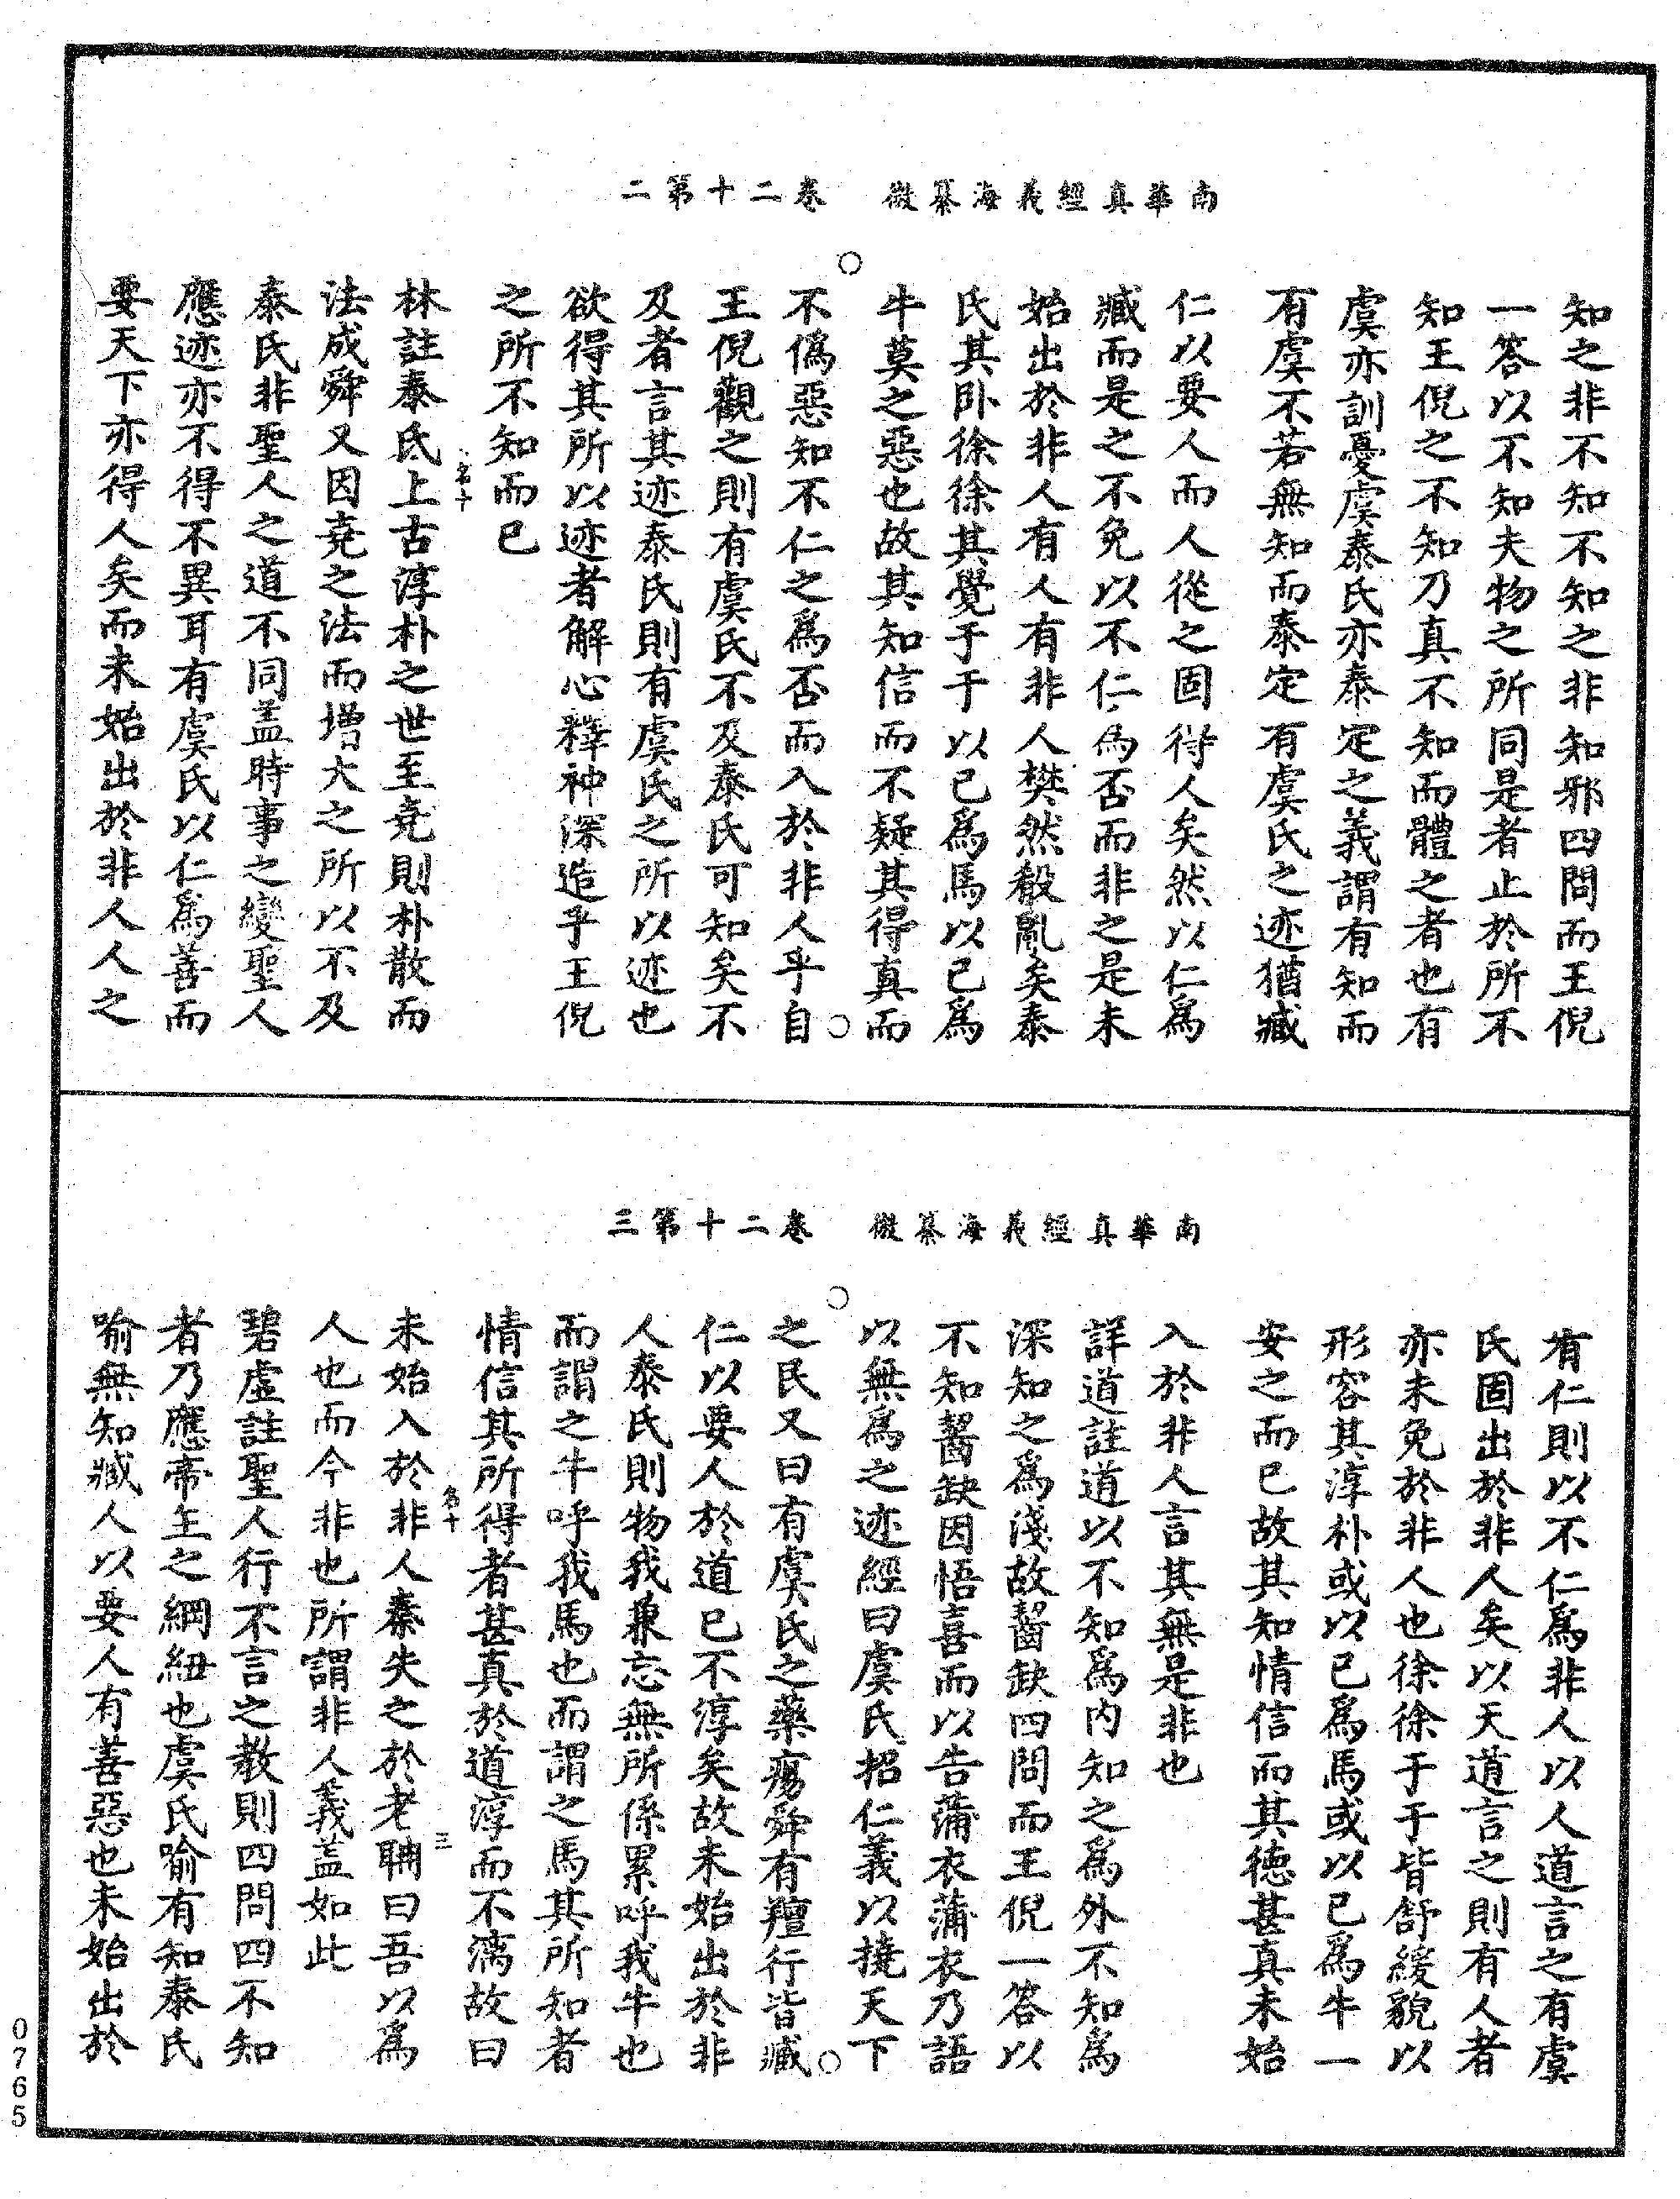 南華真經義海纂微　卷二十第二
知之非不知不知之非知邪四問而王倪
一答以不知夫物之所同是者止於所不
知王倪之不知乃真不知而體之者也有
虞亦訓憂虞泰氏亦泰定之義謂有知而
有虞不若無知而泰定有虞氏之迹猶臧
仁以要人而人從之固得人矣然以仁爲
臧而是之不免以不仁爲否而非之是未
始出於非人有人有非人樊然殽亂矣泰
氏其卧徐徐其覺于于以已爲馬以已爲
牛莫之惡也故其知信而不疑其得真而
不僞惡知不仁之爲否而入於非人乎自
王倪觀之則有虞氏不及泰氏可知矣不
及者言其迹泰氏則有虞氏之所以迹也
欲得其所以迹者解心釋神深造乎王倪
之所不知而已
林註泰氏上古淳朴之世至堯則朴散而
法成舜又因堯之法而增大之所以不及
泰氏非聖人之道不同盖時事之變聖人
應迹亦不得不異耳有虞氏以仁爲善而
要天下亦得人矣而未始出於非人人之
南華真經義海纂微　卷二十第三
有仁則以不仁爲非人以人道言之有虞
氏固出於非人矣以天道言之則有人者
亦未免於非人也徐徐于于皆舒緩貌以
形容其淳朴或以已爲馬或以已爲牛一
安之而已故其知情信而其德甚真未始
入於非人言其無是非也
詳道註道以不知爲內知之爲外不知爲
深知之爲淺故齧缺四問而王倪一答以
不知齧缺因悟喜而以告蒲衣蒲衣乃語
以無爲之迹經曰虞氏招仁義以撓天下
之民又曰有虞氏之藥瘍舜有羶行皆臧
仁以要人於道已不淳矣故未始出於非
人泰氏則物我兼忘無所係累呼我牛也
而謂之牛呼我馬也而謂之馬其所知者
情信其所得者甚真於道淳而不漓故曰
未始入於非人秦失之於老聃曰吾以爲
人也而今非也所謂非人義盖如此
碧虛註聖人行不言之教則四問四不知
者乃應帝王之綱紐也虞氏喻有知泰氏
喻無知臧人以要人有善惡也未始出於
0765